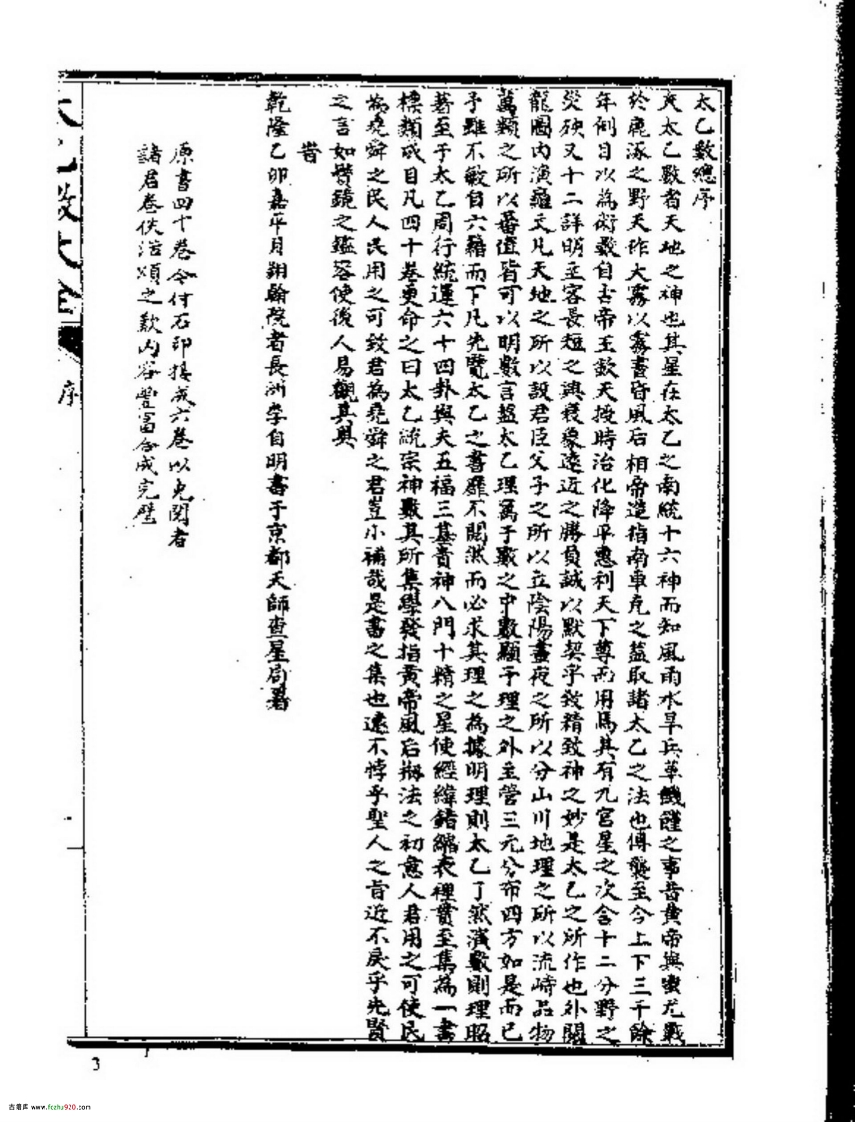 太乙數總序
夫太乙數者天地之神也其星在太乙之南統十六神而知風雨水旱兵革饑饉之事昔黃帝與蚩尤戰
於鹿涿之野天作大霧以霧晝昏風后相帝造指南車克之蓋取諸太乙之法也傳襲至今上下三千餘
年例目以為術數自古帝王欽天授時治化降平惠利天下尊而用焉其有九宮星之次舍十二分野之
災硤又十二詳明主客長短之輿衰象遠近之勝負誠以默契乎致精致神之妙是太乙之所作也外闢
龍圖內演羅文凡天地之所以設君臣父子之所以立陰陽晝夜之所以分山川地理之所以流峙品物
萬類之所以蕃值皆可以明數言蓋太乙理寓于數之中數顯于理之外主管三元分布四方如是而已
予雖不敏自六籍而下凡先覽太乙之書靡不閱然而必求其理之為據明理則太乙了然演數則理昭
著至于太乙周行統運六十四卦與夫五福三基貴神八門十精之星使經緯錯綜表裡貫至集為一書
標類成目凡四十卷更命之曰太乙統宗神數其所集學發指黃帝風后捌法之初意人君用之可使民
為堯舜之民人民用之可致君為堯舜之君豈小補哉是書之集也遠不悖乎聖人之旨近不戾乎先賢
之言如鬢鏡之鑑容使後人易觀其奧
昔
乾隆乙卯嘉平月翔翰院者長洲李自明書于京都天師查星局署
原書四十卷今付石印接成六卷以免閱者
諸君卷佚浩煩之歎內容豐富合成完璧
太乙數大全
序
3
古易库 www.fczhu920.com